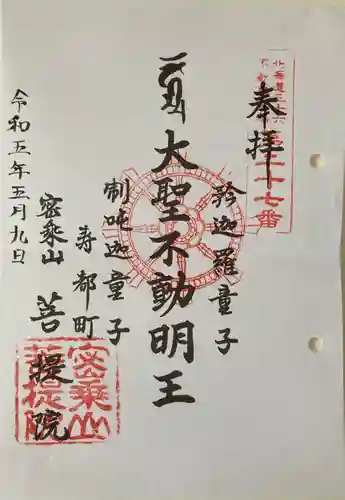 奉拝
第二十七番
矜迦羅童子
大聖不動明王
制吒迦童子
寿都町
密乗山
菩提院
令和五年五月九日
密乗山
菩提院